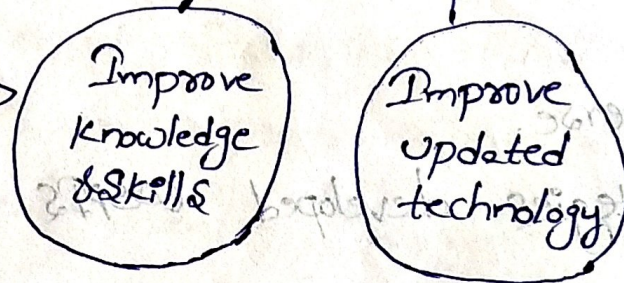 Improve
knowledge
& Skills
Improve
updated
technology